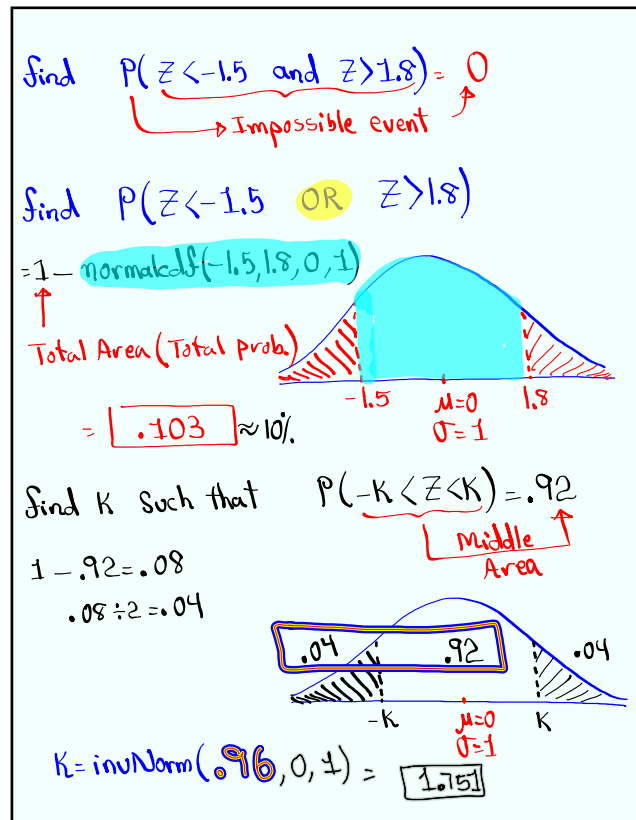 find P(Z<-1.5 and Z>1.8) = 0
Impossible event
find P(Z<-1.5 OR Z>1.8)
=1-normalcdf(-1.5,1.8,0,1)
Total Area (Total prob.)
-1.5 μ=0 1.8
σ=1
= .103 ≈10%
find K such that P(-K<Z<K)=.92
Middle
Area
1-.92=.08
.08÷2=.04
.04 .92 .04
-K μ=0 K
σ=1
K=invNorm(.96,0,1) = 1.751